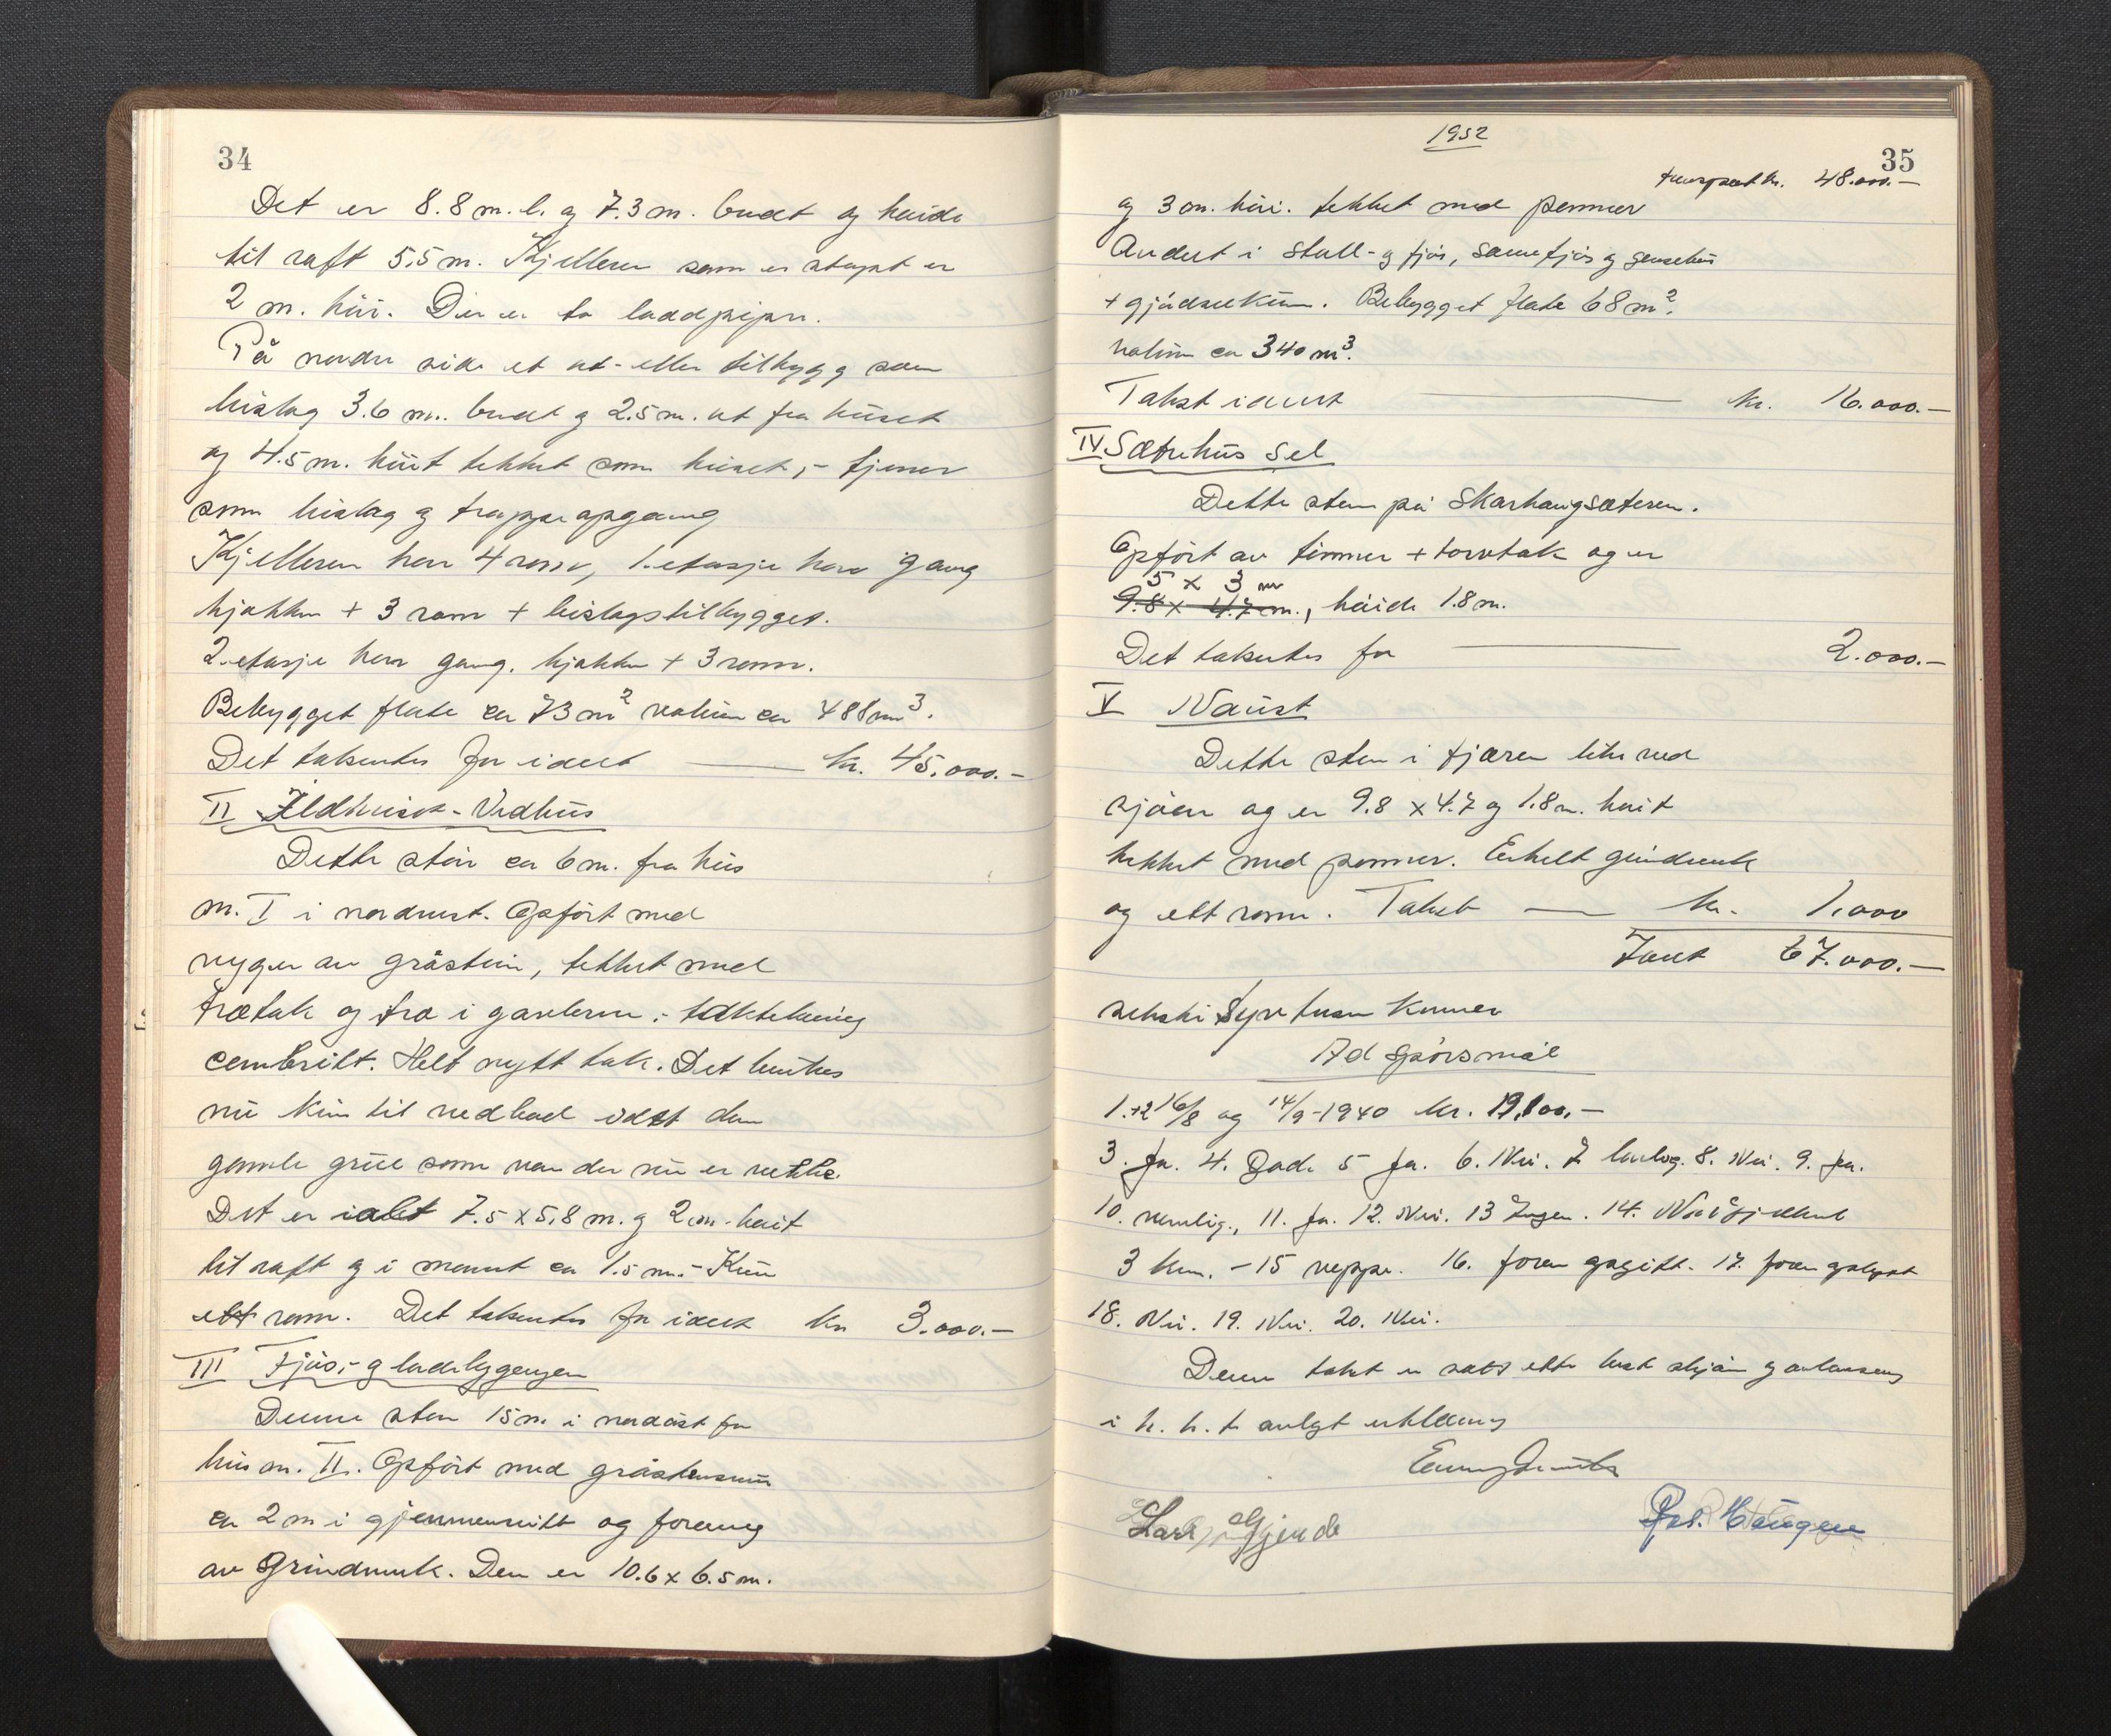 34
Det er 8.8 m. l. og 7.3 m. bredt og høide
til raft 5,5 m. Kjelleren som er støypt er
2 m. høi. Der er to laddpiper.
På nordre side et ut- eller tilbygg som
bislag 3.6 m. bredt og 2.5 m. ut fra huset
og 4.5 m. høit tekket som huset, - tjener
som bislag og trappeopgang
Kjelleren har 4 rom, 1. etasje har gang
kjøkken + 3 rom + bislagstilbygget.
2. etasje har gang. kjøkken + 3 rom.
Bebygget flate ca 73 m² volum ca 488 m³.
Det takseres for ialt kr. 45.000.-
II Ildhuset - Vedhus
Dette står ca 6 m. fra hus
m. I i nordvest. Opført med
vegger av gråstein, tekket med
trætak og træ i gavlerne; taktekning
cembritt. Helt nytt tak. Det brukes
nu kun til vedbod idet den
gamle grue som var der nu er vekke.
Det er ialt 7.5 x 5,8 m. og 2 m. høit
til raft og i mønet ca 1.5 m. - Kun
ett rom. Det takseres for ialt kr 3.000.-
III Fjøs,- og ladebyggengen
Denne står 15 m. i nordøst for
hus m. II. Opført med gråstensmur
ca 2 m i gjennemsnitt og forøvrig
av Grindverk. Den er 10.6 x 6.5 m.
1952
35
transport kr. 48.000.-
og 3 m. høi. tekket med penner
Andelt i stall- og fjøs, sauefjøs og gensehus
+ gjødselkum. Bebygget flate 68 m².
volum ca 340 m³.
Takst ialt kr. 16.000.-
IV Sætrehus Sel
Dette står på Skarhaugsæteren.
Opført av timmer + torvtak og er
5 x 3 m
9.8 x 4.7 m., høide 1.8 m.
Det takseres for 2.000.-
V Naust
Dette står i fjæren like ved
sjøen og er 9.8 x 4.7 og 1.8 m. høit
tekket med penner. Enkelt grindverk
og ett rom. Takst kr. 1.000
Ialt 67.000.-
sekstisyv tusen kroner
Ad spørsmål
1.+2 16/8 og 14/9-1940 kr. 19.100.-
3. Ja. 4. Gode 5 Ja. 6. Nei. 7 8. Nei. 9. Ja.
10. vanlig., 11. Ja. 12. Nei. 13 Ingen. 14.
3 km. - 15 neppe. 16. foran opgitt. 17. foran oplyst
18. Nei. 19. Nei. 20. Nei.
Denne takst er satt efter best skjøn og
i h. h. t avlagt erklæring
Lars Gjerde